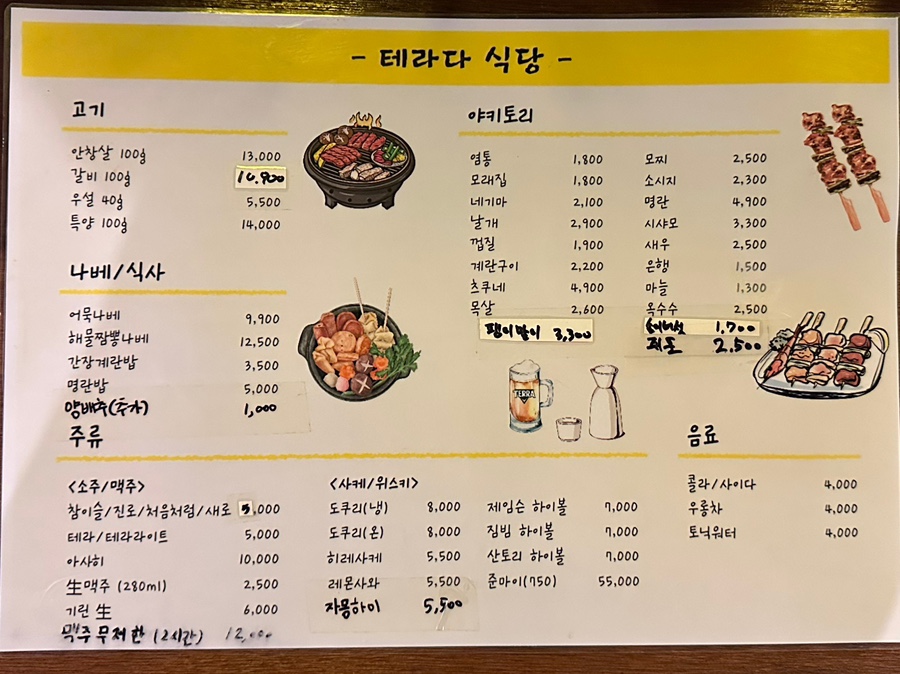 - 테라다 식당 -
고기
안창살 100g 13,000
갈비 100g 16,900
우설 40g 5,500
특양 100g 14,000
나베/식사
어묵나베 9,900
해물짬뽕나베 12,500
간장계란밥 3,500
명란밥 5,000
양배추(추가) 1,000
야키토리
염통 1,800
모래집 1,800
네기마 2,100
날개 2,900
껍질 1,900
계란구이 2,200
츠쿠네 4,900
목살 2,600
팽이말이 3,300
모찌 2,500
소시지 2,300
명란 4,900
시샤모 3,300
새우 2,500
은행 1,500
마늘 1,300
옥수수 2,500
1,700
2,500
TERRA
주류
<소주/맥주>
참이슬/진로/처음처럼/새로 5,000
테라/테라라이트 5,000
아사히 10,000
生맥주 (280ml) 2,500
기린 生 6,000
맥주 무제한 (2시간) 12,000
<사케/위스키>
도쿠리(냉) 8,000
도쿠리(온) 8,000
히레사케 5,500
레몬사와 5,500
자몽하이 5,500
제임슨 하이볼 7,000
짐빔 하이볼 7,000
산토리 하이볼 7,000
준마이(750) 55,000
음료
콜라/사이다 4,000
우롱차 4,000
토닉워터 4,000